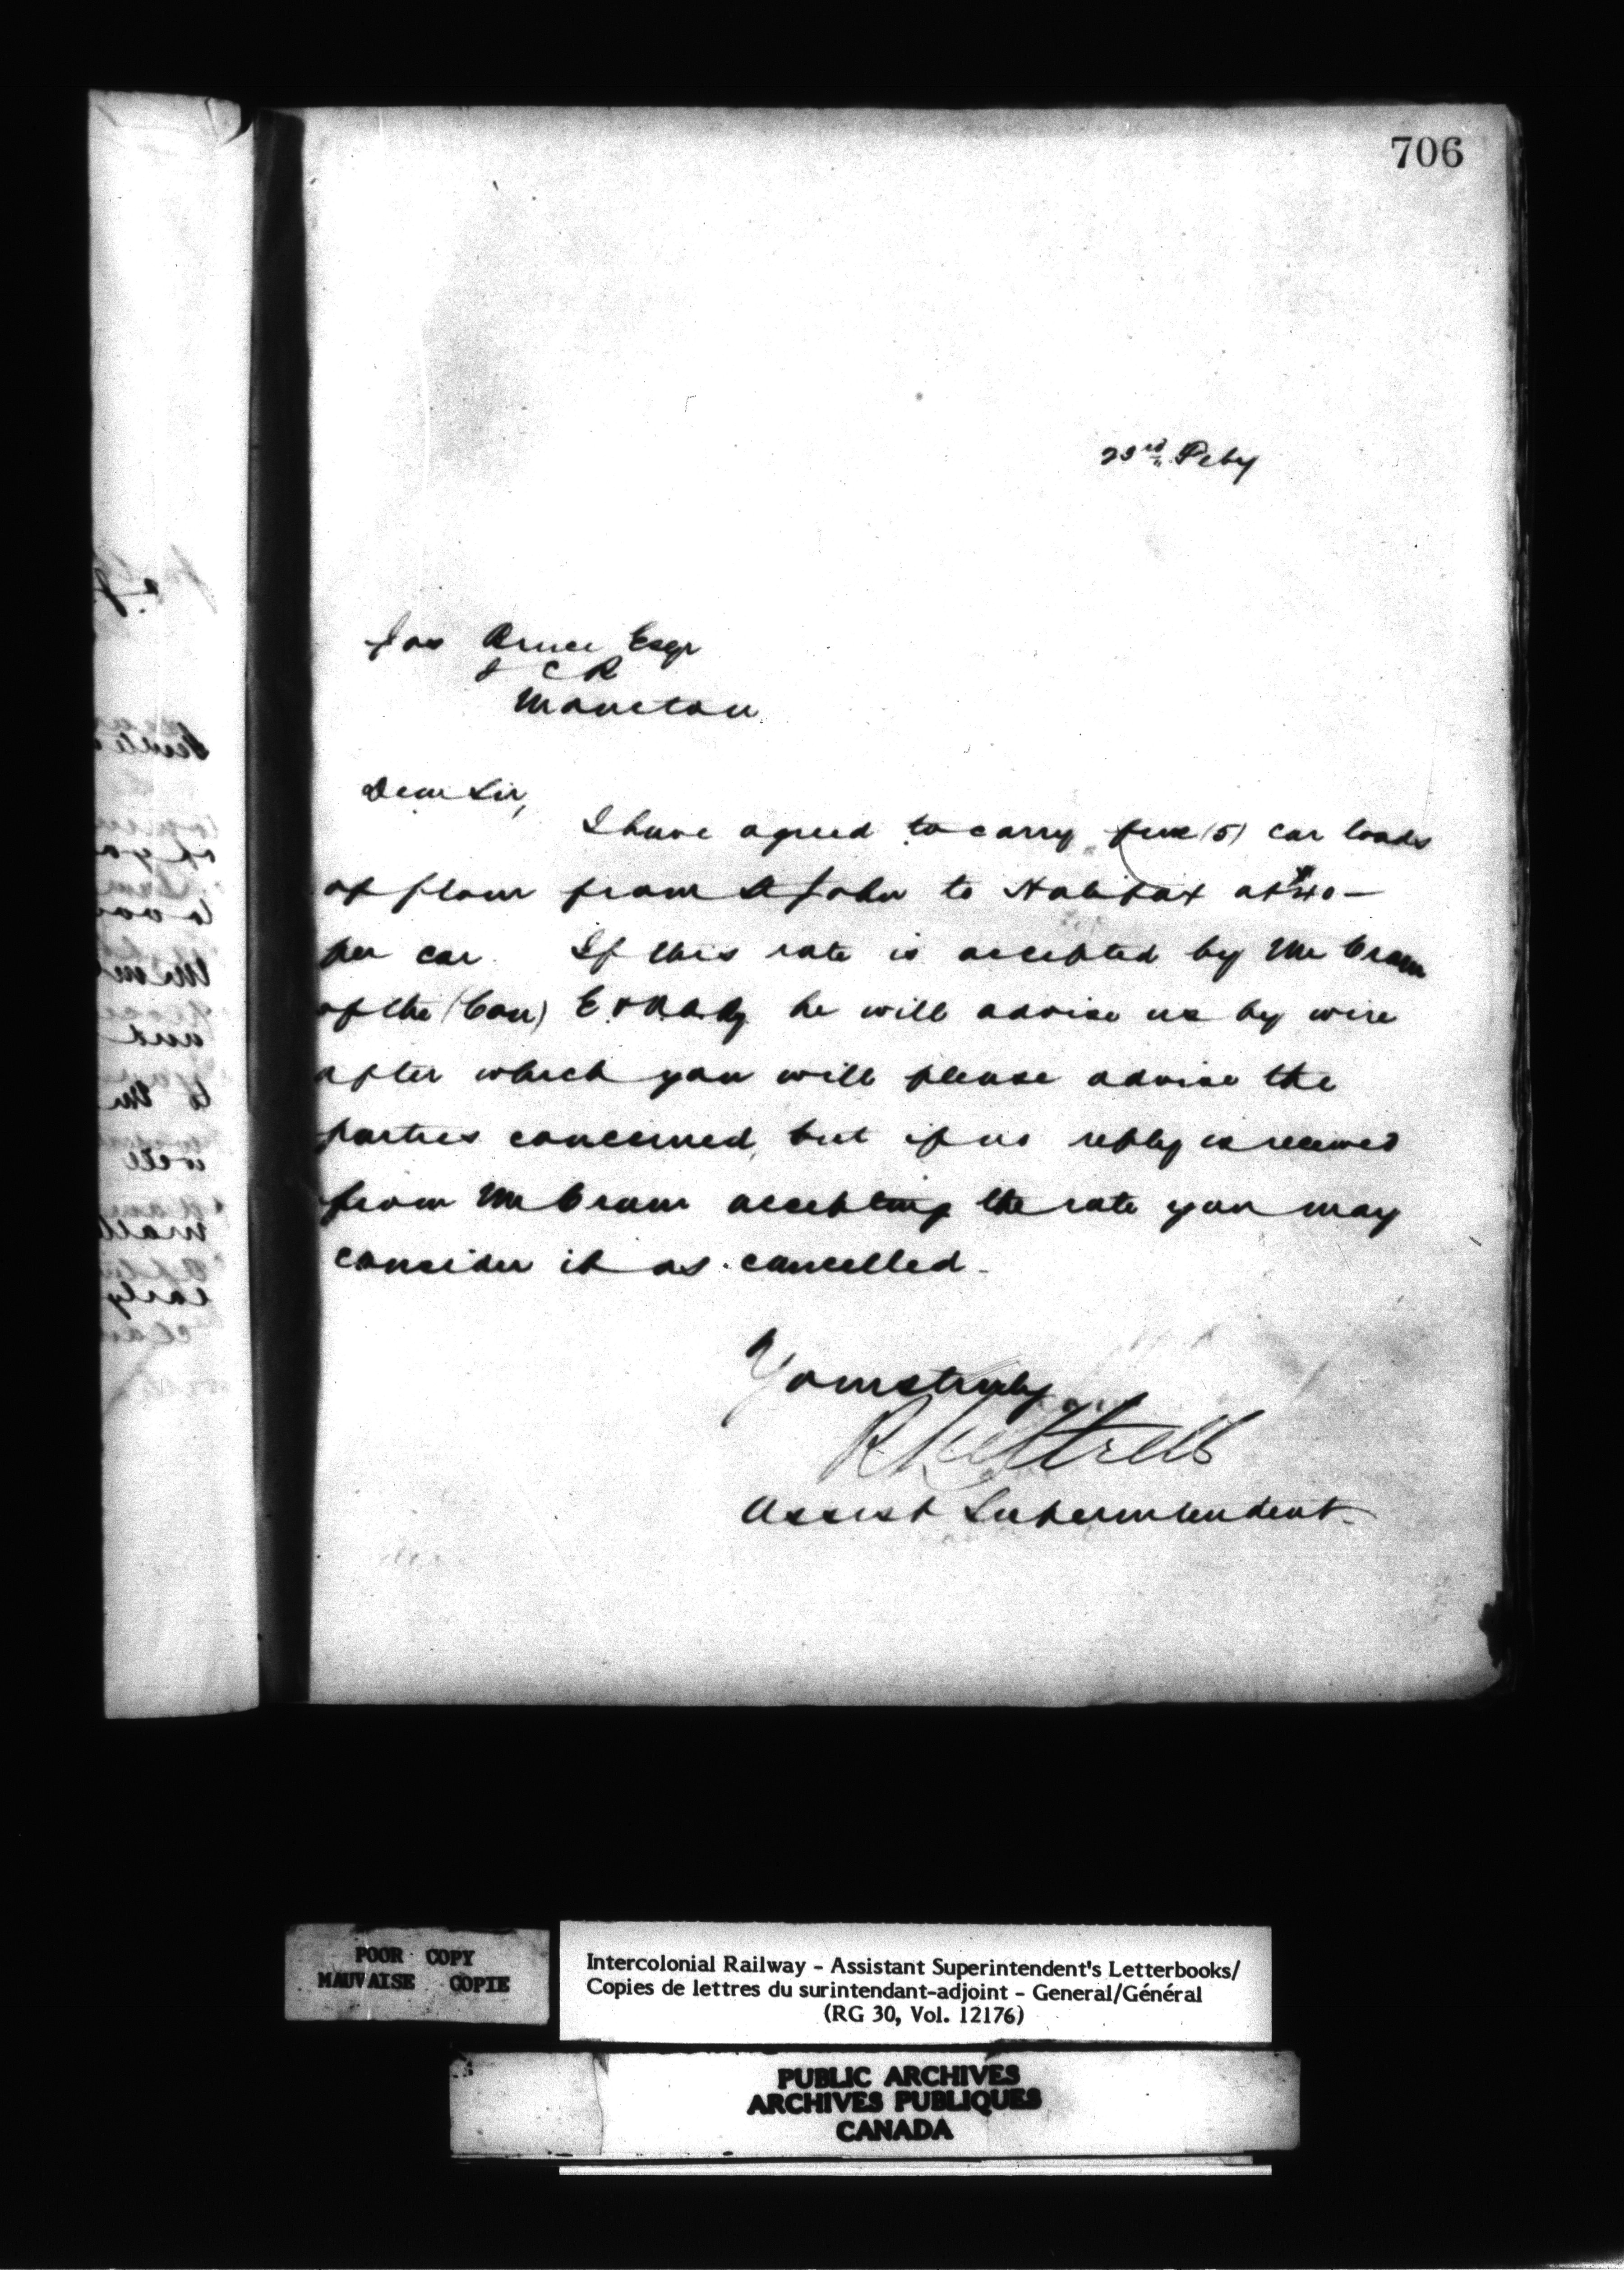 706
23rd Feby
Jas Bruce Esqr
I C R
Moncton
Dear Sir,
I have agreed to carry five (5) car loads
of flour from St John to Halifax at $40 —
per car. If this rate is accepted by Mr Cram
of the (Con) E & N A Ry he will advise us by wire
after which you will please advise the
parties concerned, but if no reply is received
from Mr Cram accepting the rate you may
consider it as cancelled.
Yours truly
Assist Superintendent
POOR COPY
MAUVAISE COPIE
Intercolonial Railway - Assistant Superintendent's Letterbooks/
Copies de lettres du surintendant-adjoint - General/Général
(RG 30, Vol. 12176)
PUBLIC ARCHIVES
ARCHIVES PUBLIQUES
CANADA